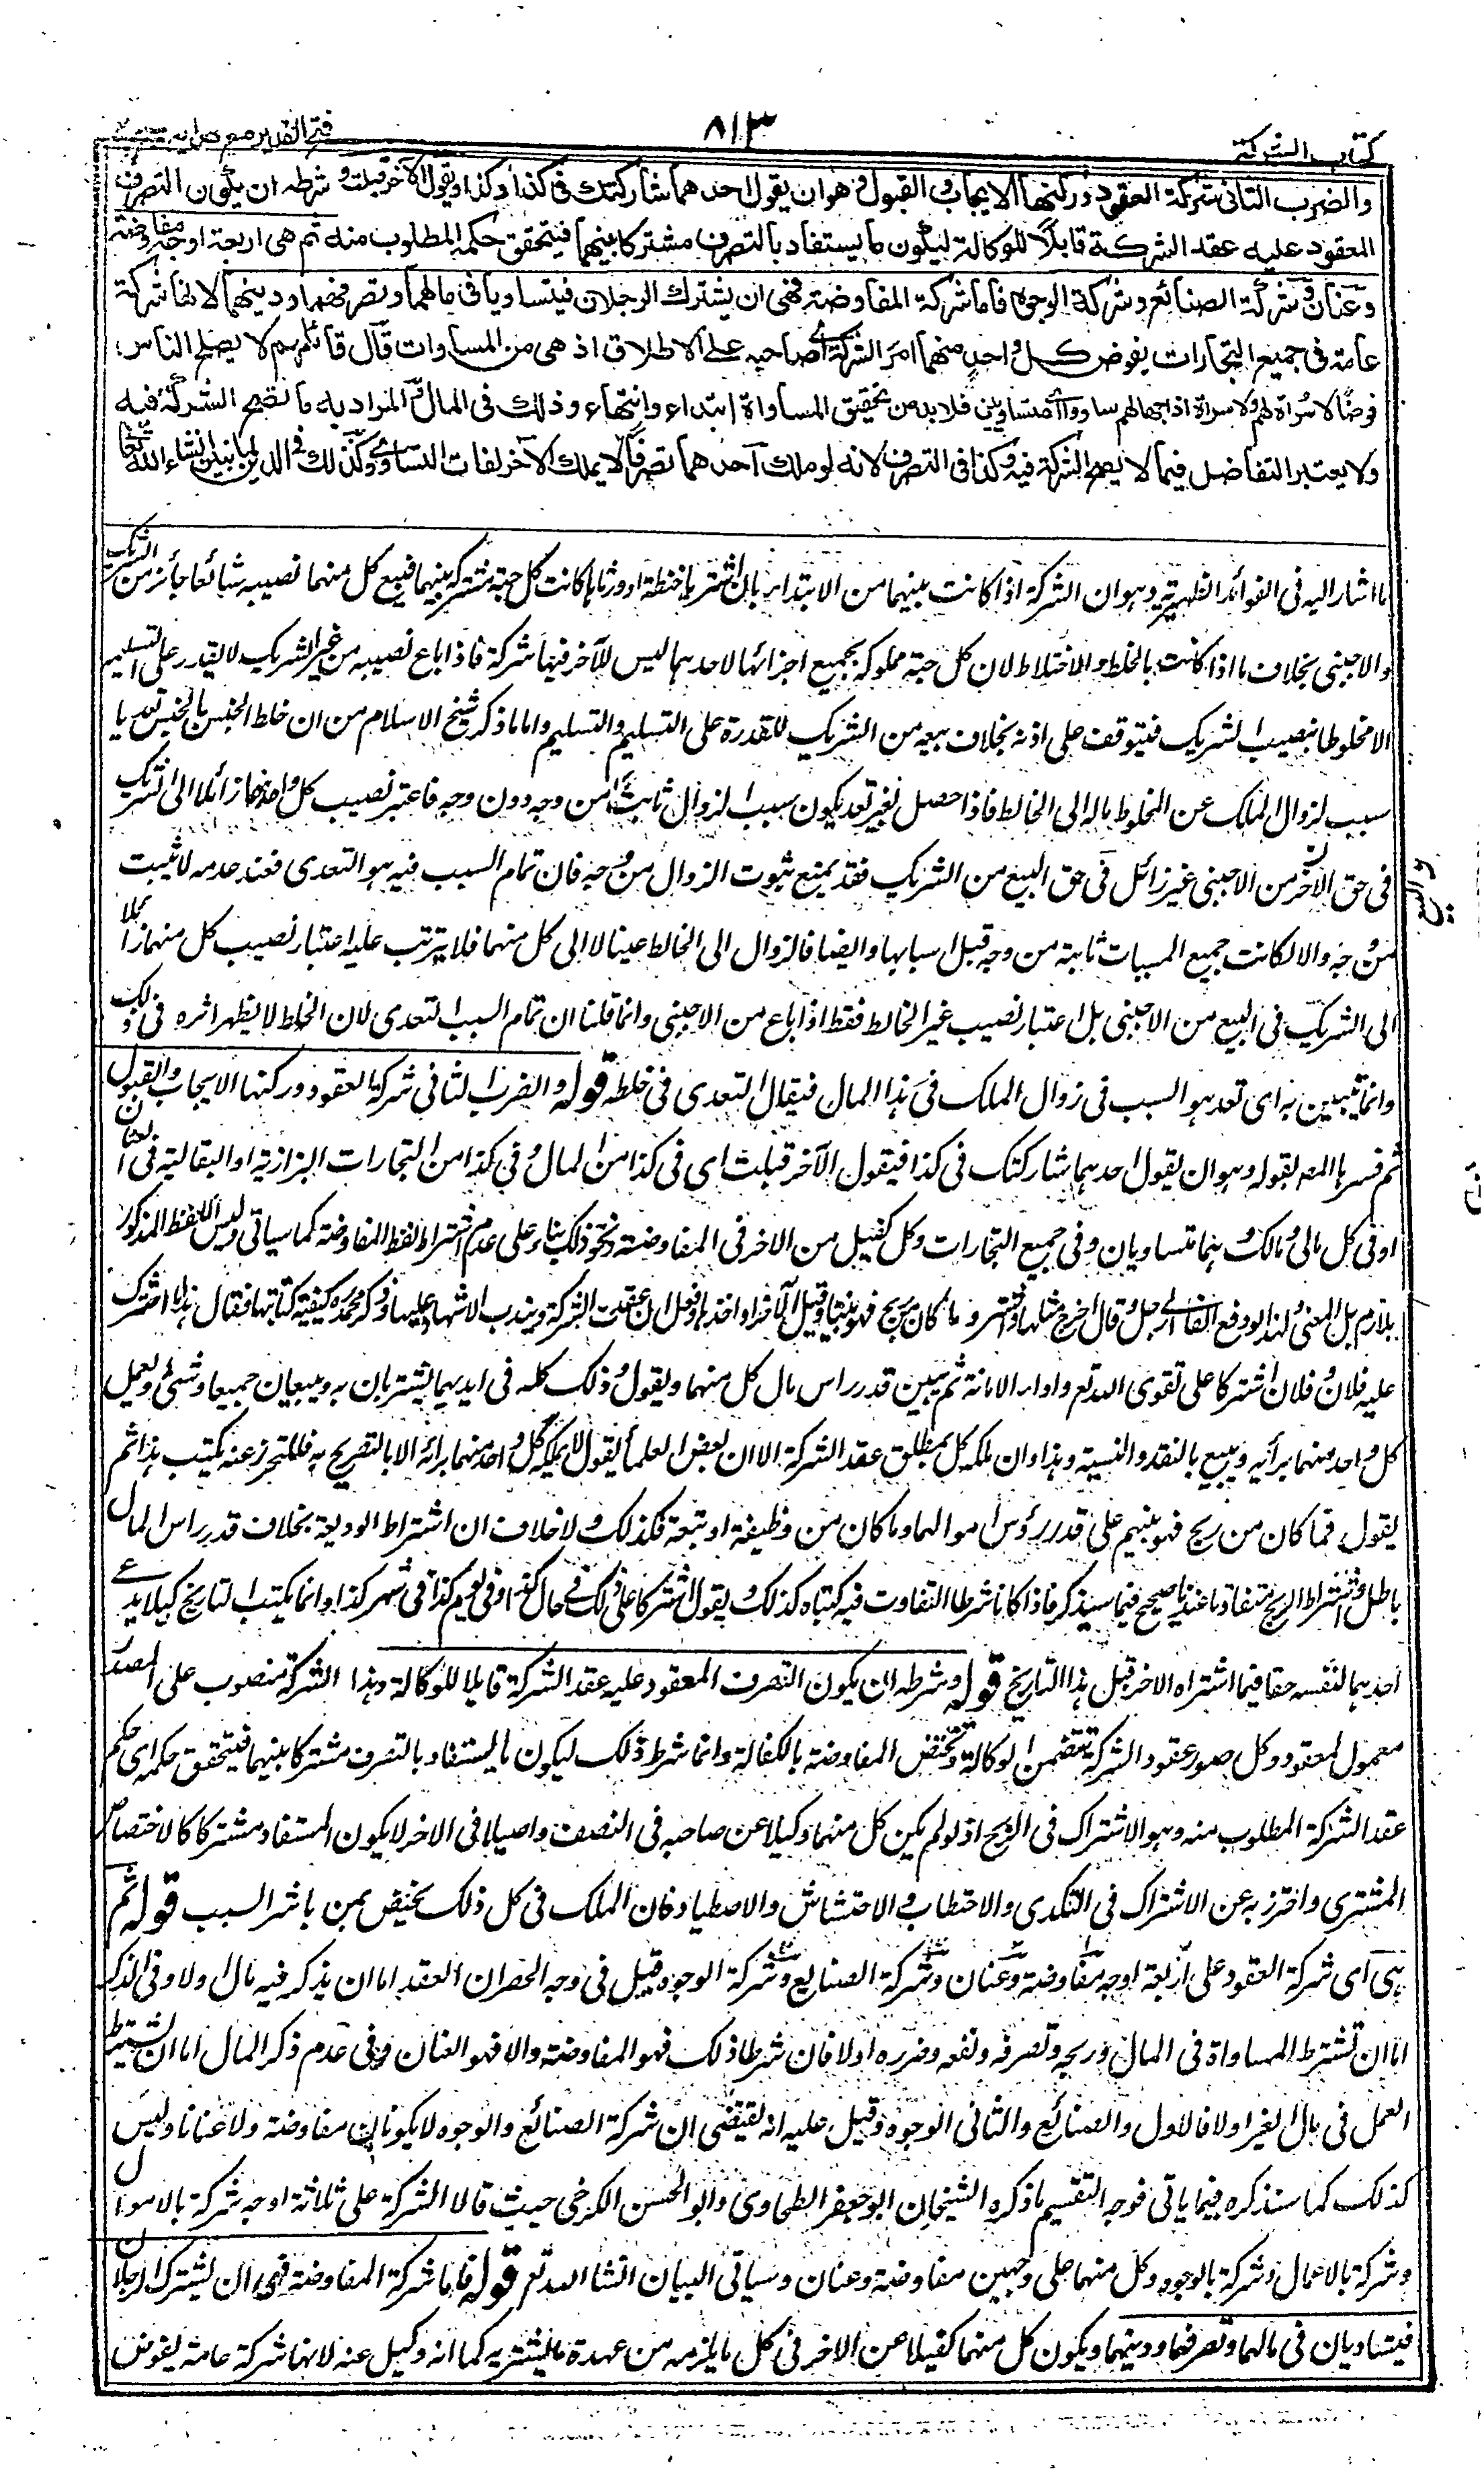 كتاب الشركة
٨١٣
فتح القدير مع هدايه
والضرب الثانى شركة العقود وركنها الايجاب والقبول وهو ان يقول احدهما شاركتك فى كذا وكذا ويقول الآخر قبلت وشرطه ان يكون التصرف
المعقود عليه عقد الشركة قابلا للوكالة ليكون ما يستفاد بالتصرف مشتركا بينهما فيتحقق حكمه المطلوب منه ثم هى اربعة اوجه مفاوضة
وعنان وشركة الصنائع وشركة الوجوه فاما شركة المفاوضة فهى ان يشترك الرجلان فيتساويا فى مالهما وتصرفهما ودينهما لانها شركة
عامة فى جميع التجارات يفوض كل واحد منهما امر الشركة الى صاحبه على الاطلاق اذ هى من المساوات قال قائلهم لا يصلح الناس
فوضى لا سراة لهم ولا سراة اذا جهالهم سادوا اى متساويين فلا بد من تحقيق المساواة ابتداء وانتهاء وذلك فى المال والمراد به ما تصح الشركة فيه
ولا يعتبر التفاضل فيما لا يصح الشركة فيه وكذا فى التصرف لانه لو ملك احدهما تصرفا لا يملك الآخر لفات التساوى وكذلك فى الدين لما نبين ان شاء الله تعالى
ما اشار اليه فى الفوائد الظهيرية وهو ان الشركة اذا كانت بينهما من الابتداء بان اشتريا حنطة او ورثاها كانت كل حبة مشتركة بينهما فبيع كل منهما نصيبه شائعا جائز من الشريك
والاجنبى بخلاف ما اذا كانت بالخلط والاختلاط لان كل حبة مملوكة بجميع اجزائها لاحدهما ليس للآخر فيها شركة فاذا باع نصيبه من غير الشريك لا يقدر على التسليم
الا مخلوطا بنصيب الشريك فيتوقف على اذنه بخلاف بيعه من الشريك للقدرة على التسليم والتسلم واما ما ذكر شيخ الاسلام من ان خلط الجنس بالجنس تعديا
سبب لزوال الملك عن المخلوط ماله الى الخالط فاذا حصل بغير تعد يكون سبب الزوال ثابتا من وجه دون وجه فاعتبر نصيب كل واحد منهما زائلا الى الشريك
فى حق البيع من الاجنبى غير زائل فى حق البيع من الشريك فقد يمنع ثبوت الزوال من وجه فان تمام السبب فيه هو التعدى فعند عدمه لا يثبت
من وجه والا لكانت جميع المسببات ثابتة من وجه قبل اسبابها وايضا فالزوال الى الخالط عينا لا الى كل منهما فلا يترتب عليه اعتبار نصيب كل منهما زائلا
الى الشريك فى البيع من الاجنبى بل اعتبار نصيب غير الخالط فقط اذا باع من الاجنبى وانما قلنا ان تمام السبب التعدى لان الخلط لا يظهر اثره فى ذلك
وانما يتبين به اى تعد هو السبب فى زوال الملك فى هذا المال فيقال التعدى فى خلطه قوله والضرب الثانى شركة العقود وركنها الايجاب والقبول
ثم فسرها المصـ بقوله وهو ان يقول احدهما شاركتك فى كذا فيقول الآخر قبلت اى فى كذا من المال وفى كذا من التجارات البزازية او البقالية فى العنان
او فى كل مالى ومالك وهما متساويان وفى جميع التجارات وكل كفيل من الاخر فى المفاوضة ونحو ذلك بناء على عدم اشتراط لفظ المفاوضة كما سياتى وليس اللفظ المذكور
بلازم بل المعنى ولهذا لو دفع الفا الى رجل وقال اخرج مثلها واشتر وما كان من ربح فهو بيننا وقبل الآخر او اخذها وفعل انعقدت الشركة ويندب الاشهاد عليها وذكر محمد ره كيفية كتابتها فقال هذا ما اشترك
عليه فلان وفلان اشتركا على تقوى الله تع واداء الامانة ثم يبين قدر راس مال كل منهما ويقول وذلك كله فى ايديهما يشتريان به ويبيعان جميعا وشتى ويعمل
كل واحد منهما برأيه ويبيع بالنقد والنسية وهذا وان ملكه كل بمطلق عقد الشركة الا ان بعض العلماء يقول لا يملكه كل واحد منهما برائه الا بالتصريح به فللتحرز عنه يكتب هذا ثم
يقول فما كان من ربح فهو بينهم على قدر رؤس اموالهما وما كان من وظيفة او تبعة فكذلك ولا خلاف ان اشتراط الوديعة بخلاف قدر راس المال
باطل واشتراط الربح متفاوتا عندنا صحيح فيما سيذكر فاذا كانا شرطا التفاوت فيه كتباه كذلك ويقول اشتركا على ذلك فى يوم كذا فى شهر كذا وانما يكتب التاريخ كيلا يدعى
احدهما لنفسه حقا فيما اشتراه الاخر قبل هذا التاريخ قوله وشرطه ان يكون التصرف المعقود عليه عقد الشركة قابلا للوكالة وهذا الشركة منصوب على المصدر
معمول لمعقود وكل صور عقود الشركة تتضمن الوكالة وتختص المفاوضة بالكفالة وانما شرط ذلك ليكون ما يستفاد بالتصرف مشتركا بينهما فيتحقق حكمه اى حكم
عقد الشركة المطلوب منه وهو الاشتراك فى الربح اذ لو لم يكن كل منهما وكيلا عن صاحبه فى النصف واصيلا فى الاخر لا يكون المستفاد مشتركا لاختصاص
المشترى واحترز به عن الاشتراك فى التكدى والاحتطاب والاحتشاش والاصطياد فان الملك فى كل ذلك يختص بمن باشر السبب قوله ثم
هى اى شركة العقود على اربعة اوجه مفاوضة وعنان وشركة الصنايع وشركة الوجوه قيل فى وجه الحصر ان العقد اما ان يذكر فيه مال اولا وفى الذكر
اما ان تشترط المساواة فى المال وربحه وتصرفه ونفعه وضرره اولا فان شرطا ذلك فهو المفاوضة والا فهو العنان وفى عدم ذكر المال اما ان يشترط
العمل فى مال الغير اولا فالاول والصنائع والثانى الوجوه وقيل عليه انه يقتضى ان شركة الصنائع والوجوه لا يكونان مفاوضة ولا عنانا وليس
كذلك كما سنذكره فيما ياتى فوجه التقسيم ما ذكره الشيخان ابو جعفر الطحاوى وابو الحسن الكرخى حيث قالا الشركة على ثلاثة اوجه شركة بالاموال
وشركة بالاعمال وشركة بالوجوه وكل منهما على وجهين مفاوضة وعنان وسياتى البيان انشا الله تع قوله فاما شركة المفاوضة فهى ان يشترك الرجلان
فيتساويان فى مالهما وتصرفهما ودينهما ويكون كل منهما كفيلا عن الاخر فى كل ما يلزمه من عهدة ما يشتريه كما انه وكيل عنه لانها شركة عامة يفوض